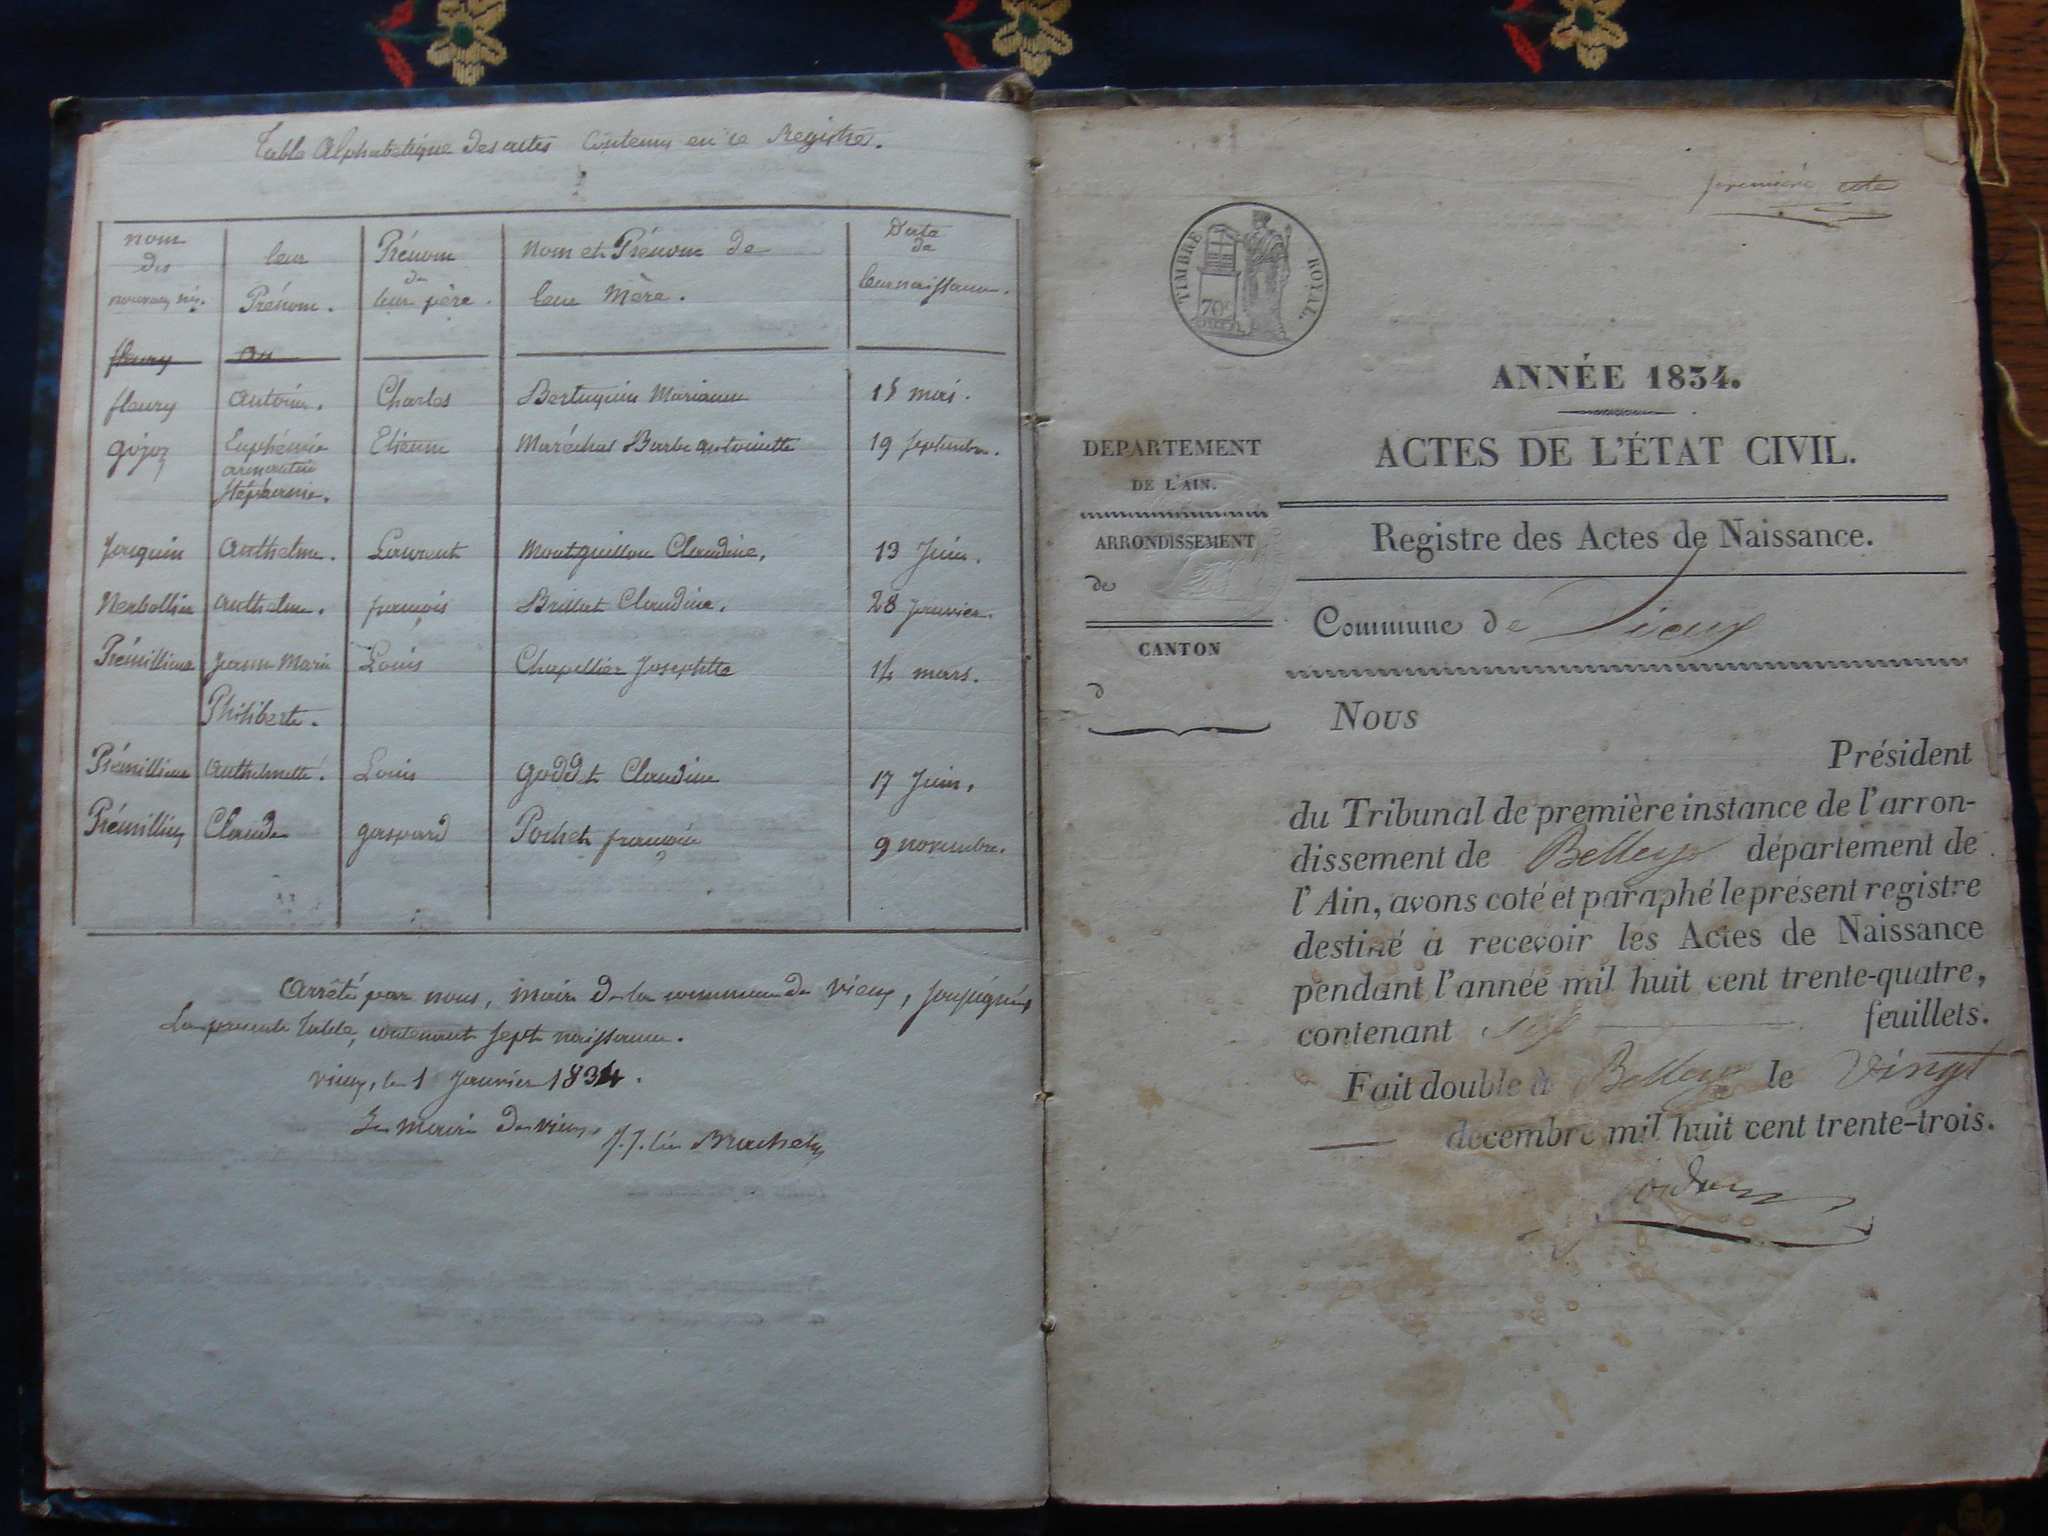 Table Alphabétique des actes Contenus en ce Registre.
nom des nouveau nés.
leur Prénom.
Prénom de leur père.
nom et Prénom de leur Mère.
Date de leur naissance.
fleury
fleury Antoine. Charles Marianne 15 mai.
gojoz Euphémie Etienne Maréchal Barbe antoinette 19 septembre.
Stéphanie.
Joaquin Anthelme. Laurent Montguillon Claudine. 13 Juin.
Nerbollier anthelme. françois Brillat Claudine. 28 janvier.
Prémillieux Jeanne Marie Louis Chapellier Josephette 14 mars.
Philiberte.
Prémillieux Anthelmette. Louis Goddet Claudine 17 Juin.
Prémillieux Claude gaspard Pochet françoise 9 novembre.
Arrêté par nous, maire de la commune de vieux, soussigné,
La presente Table, contenant sept naissance.
vieux, le 1 Janvier 1834.
Le maire de vieux,
première cote
TIMBRE ROYAL.
70c
ANNÉE 1834.
ACTES DE L'ÉTAT CIVIL.
DEPARTEMENT
DE L'AIN.
ARRONDISSEMENT
de
CANTON
d
Registre des Actes de Naissance.
Commune de Vieux
Nous
Président
du Tribunal de première instance de l'arron-
dissement de Belley département de
l'Ain, avons coté et paraphé le présent registre
destiné à recevoir les Actes de Naissance
pendant l'année mil huit cent trente-quatre,
contenant six feuillets.
Fait double à Belley le vingt
decembre mil huit cent trente-trois.